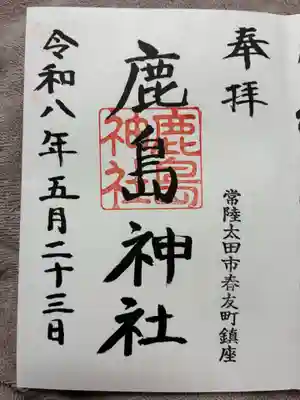 奉拝
常陸太田市春友町鎮座
鹿島神社
鹿島
神社
令和八年五月二十三日